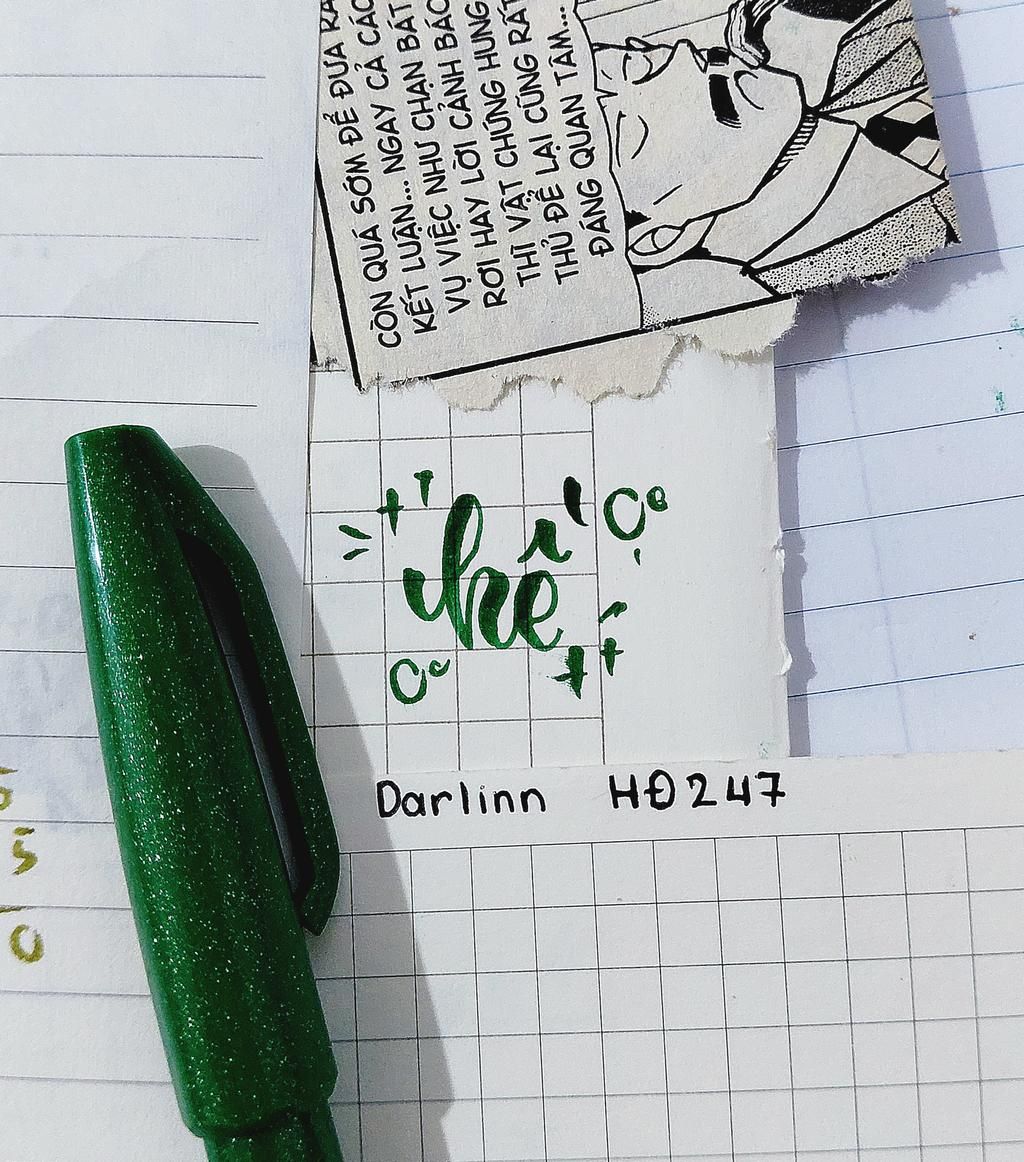 CÒN QUÁ SỚM ĐỂ ĐƯA RA
KẾT LUẬN... NGAY CẢ CÁC
VỤ VIỆC NHƯ CHẠN BÁT
RƠI HAY LỜI CẢNH BÁO
THÌ VẬT CHỨNG HUNG
THỦ ĐỂ LẠI CŨNG RẤT
ĐÁNG QUAN TÂM...
Darlinn HĐ247